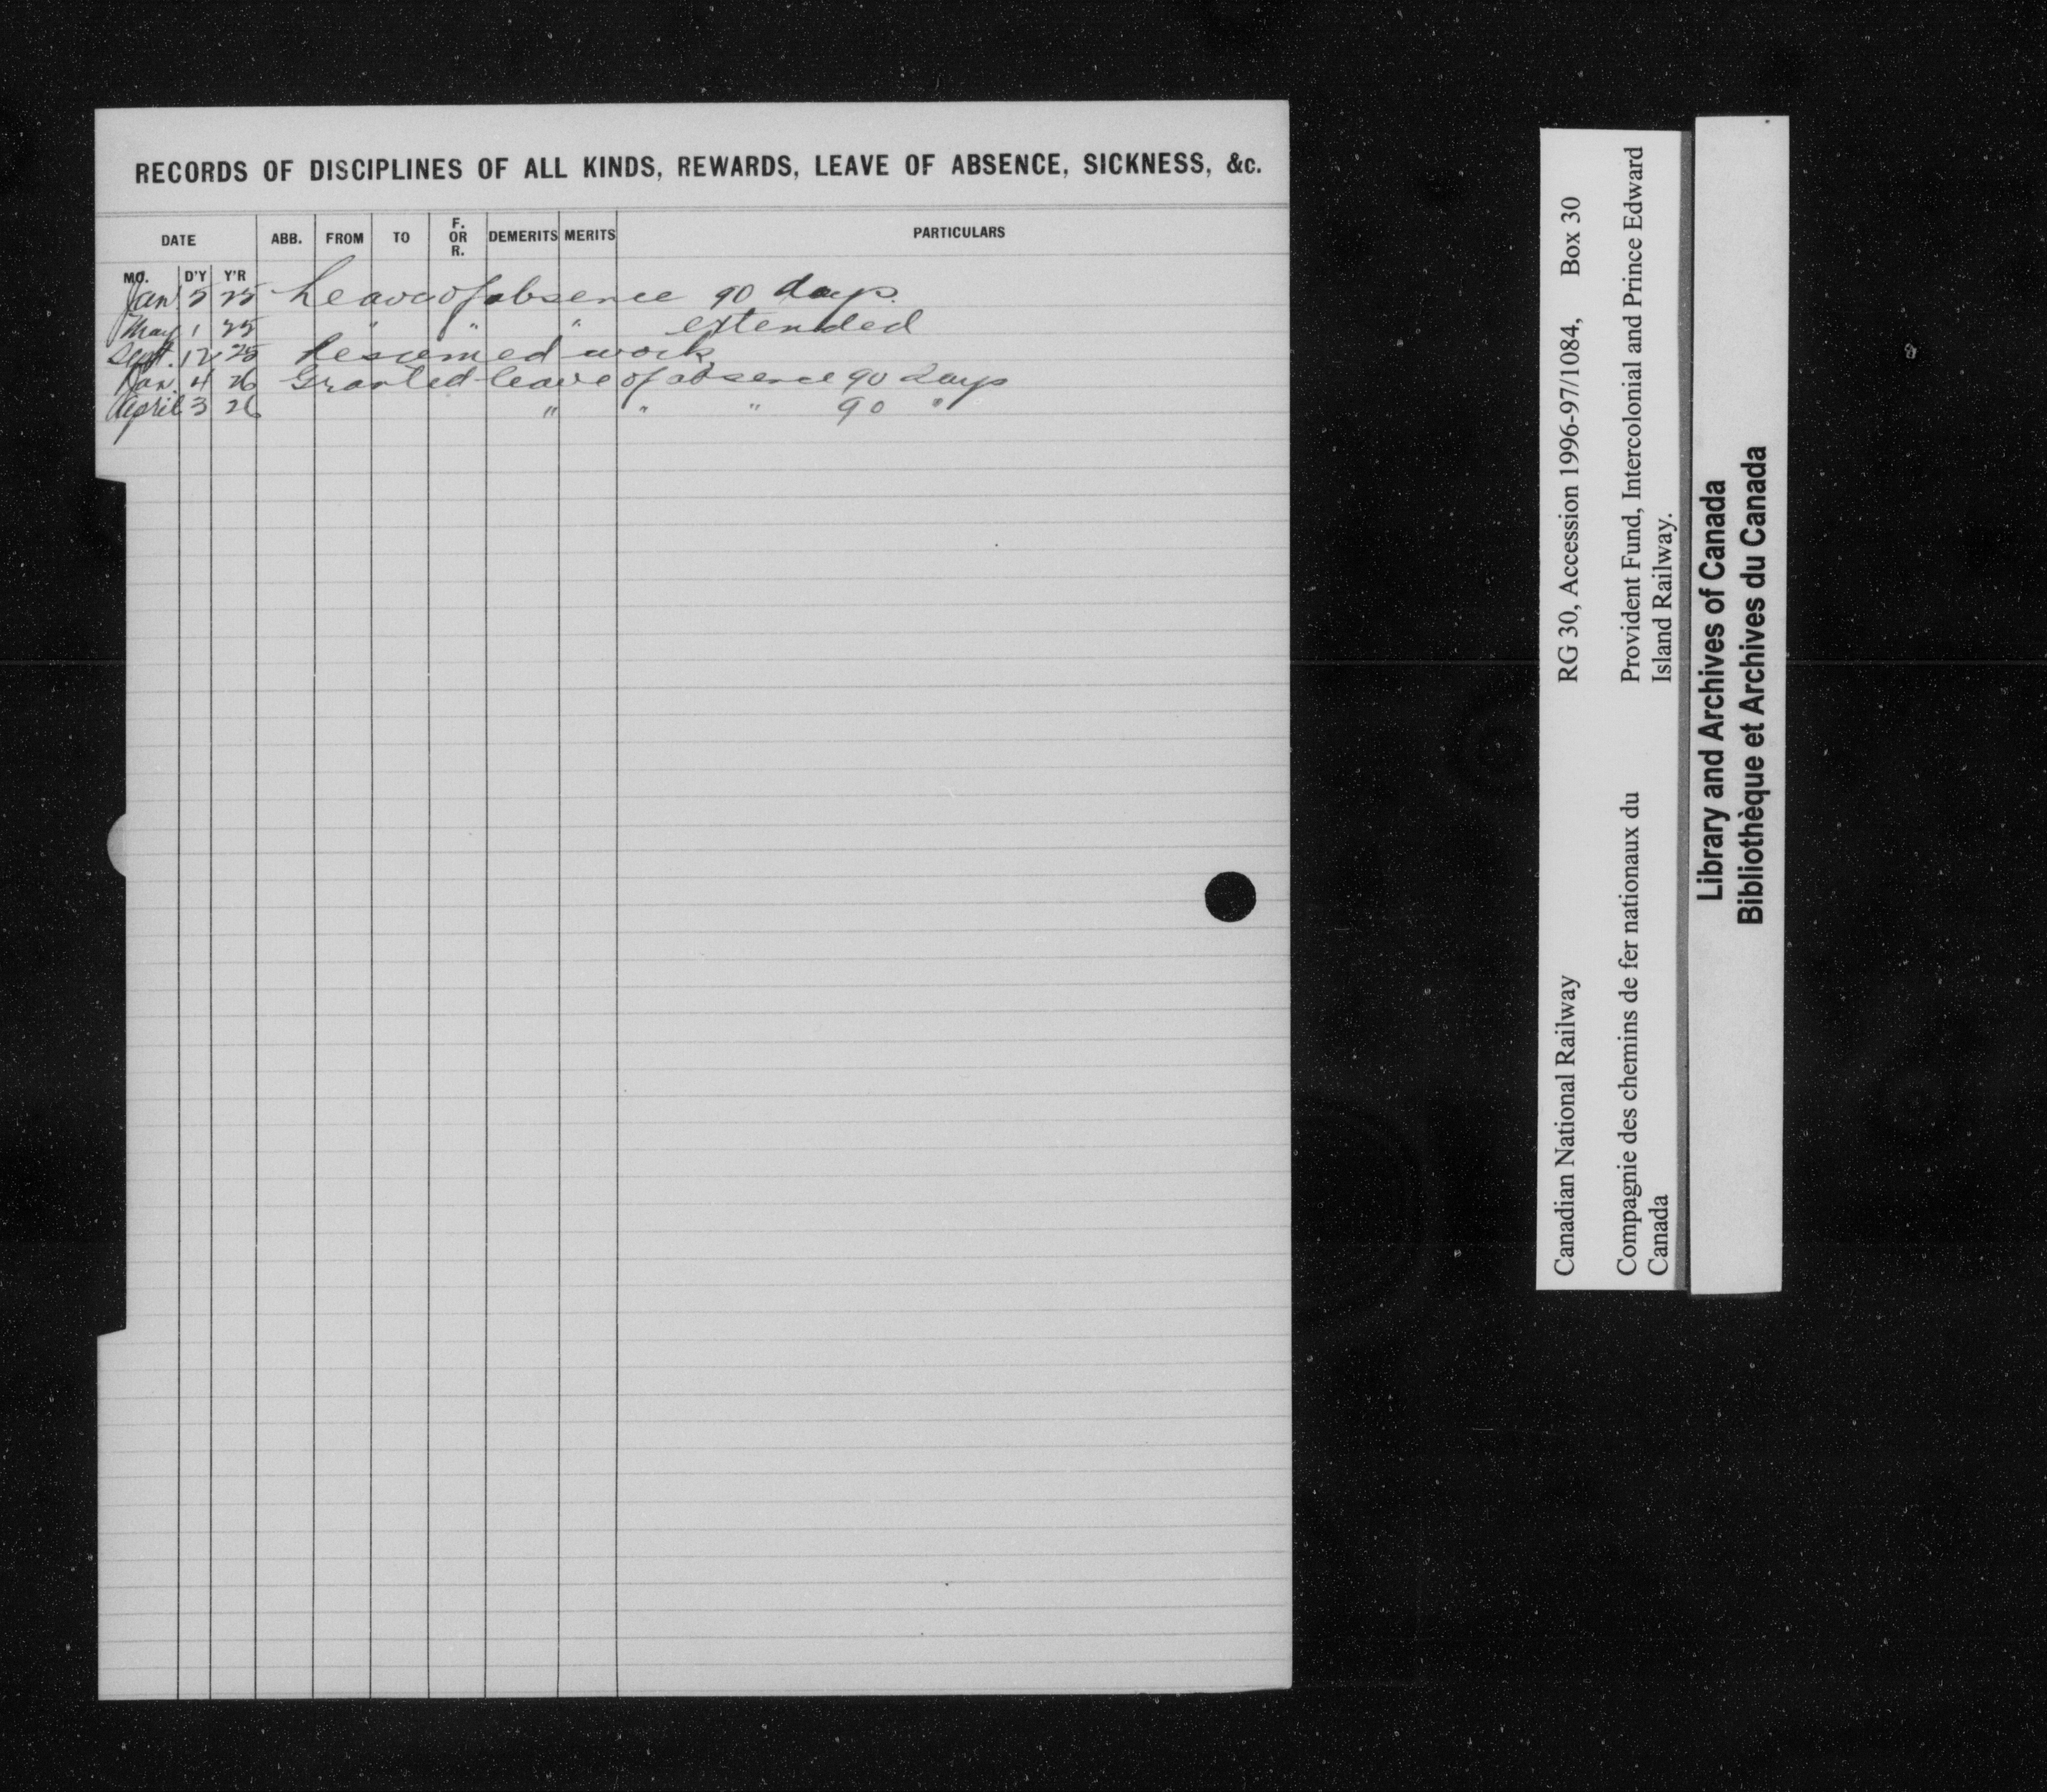 RECORDS OF DISCIPLINES OF ALL KINDS, REWARDS, LEAVE OF ABSENCE, SICKNESS, &c.
DATE ABB. FROM TO F. OR R. DEMERITS MERITS PARTICULARS
MO. D'Y Y'R
Jan. 5 25 Leave of absence 90 days.
May 1 25 " " " extended
Sept. 12 25 Resumed work
Jan. 4 26 Granted leave of absence 90 days
April 3 26 " " " 90 "
Canadian National Railway RG 30, Accession 1996-97/1084, Box 30
Compagnie des chemins de fer nationaux du Provident Fund, Intercolonial and Prince Edward
Canada Island Railway.
Library and Archives of Canada
Bibliothèque et Archives du Canada